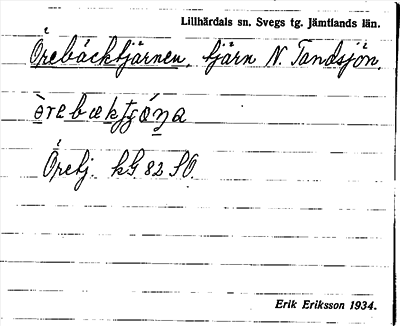 Lillhärdals sn. Svegs tg. Jämtlands län.
Örebäcktjärnen, tjärn N. Tandsjön.
Örebj. kG 82 SO.
Erik Eriksson 1934.